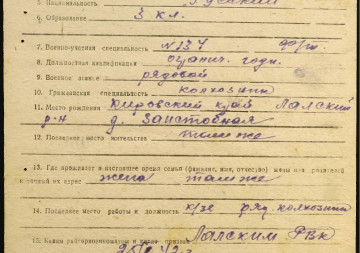 5. Национальность русский
6. Образование 3 кл.
7. Военно-учетная специальность №134
8. Должностная квалификация огранич. годн.
9. Военное звание рядовой
10. Гражданская специальность колхозник
11. Место рождения Кировский край Лальский
р-н д. Заистовная
12. Последнее место жительства там же
13. Где проживает в настоящее время семья (фамилия, имя, отчество) жены или родителей
и точный их адрес жена там же
14. Последнее место работы и должность к/хоз ряд. колхозник
15. Каким райгорвоенкоматом и когда призван Лальским РВК
42 г.